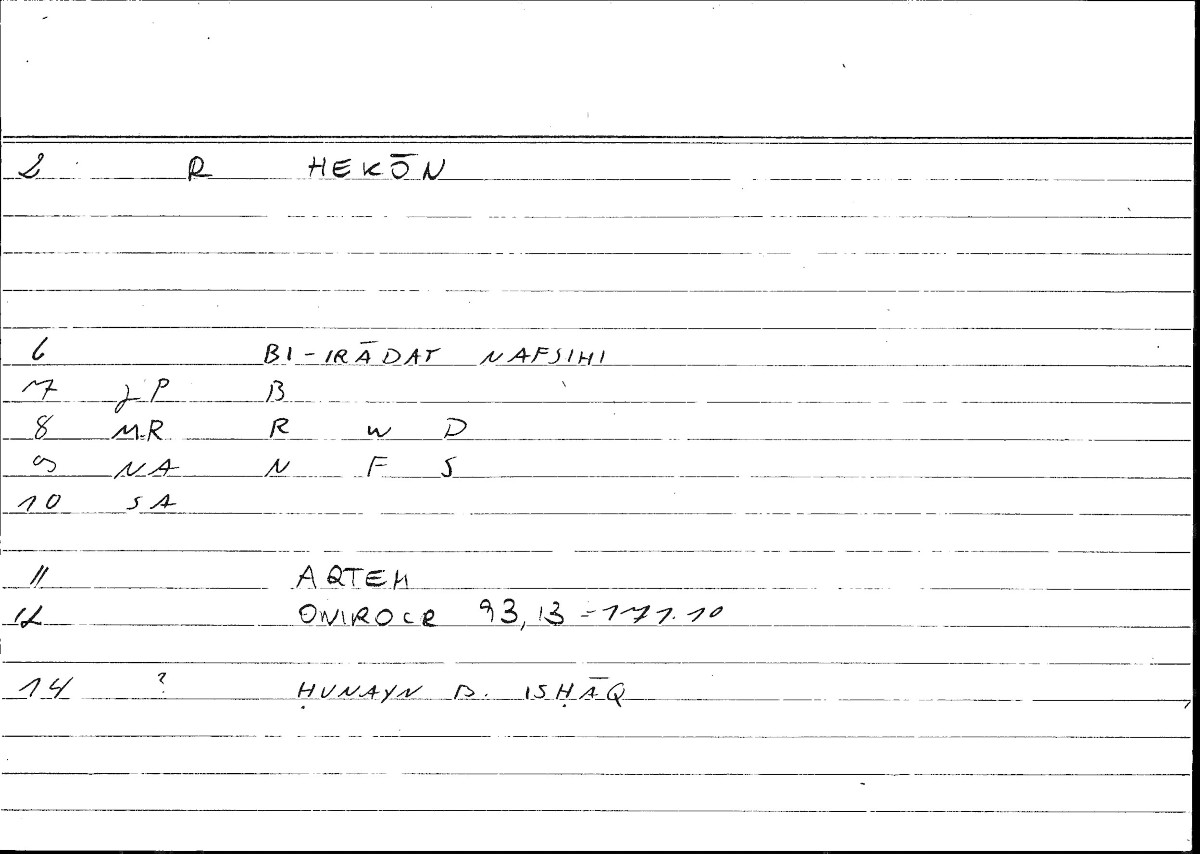 2 R HEKŌN
6 BI-IRĀDAT NAFSIHI
7 JP B
8 MR R W D
9 NA N F S
10 SA
11 ARTEM
12 ONIROCR 93,13 = 171.10
14 ? ḤUNAYN B. ISḤĀQ